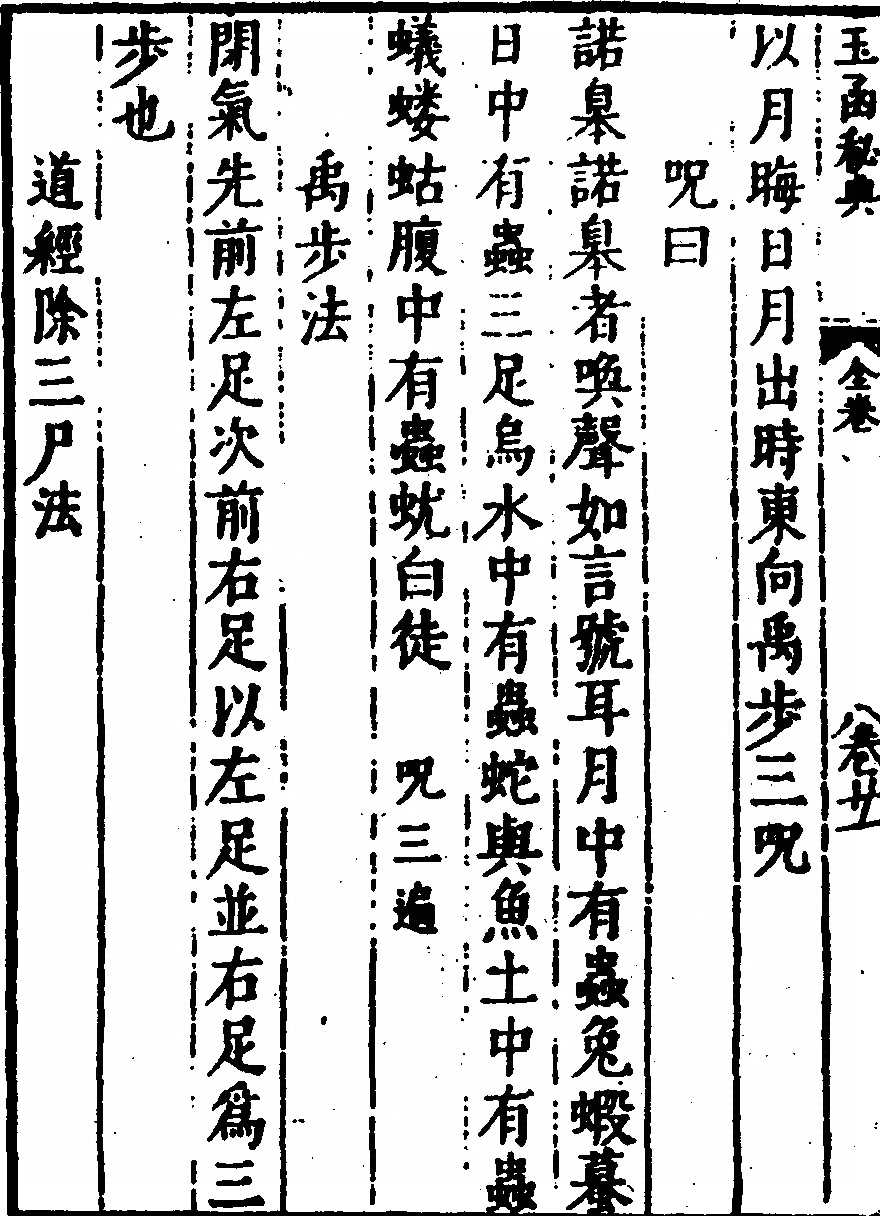 玉函秘典 全卷 八卷廿五
以月晦日月出時東向禹步三呪
呪曰
諾皐諾皐者喚聲如言號耳月中有蟲兔蝦蟇
日中有蟲三足烏水中有蟲蛇與魚土中有蟲
蟻螻蛄腹中有蟲蚘白徒 呪三遍
禹步法
閉氣先前左足次前右足以左足並右足爲三
步也
道經除三尸法